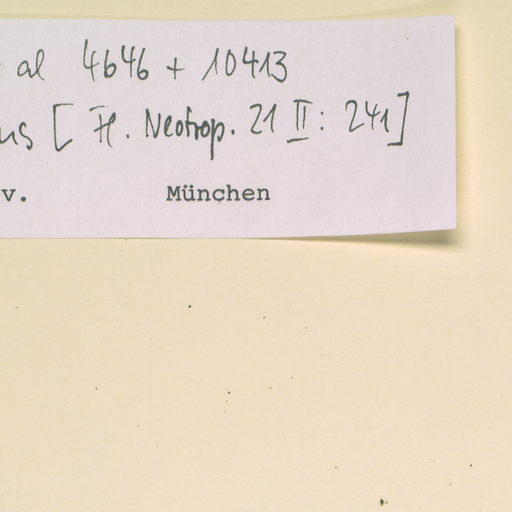 al 4646 + 10413
us [Fl. Neotrop. 21 II: 241]
v. München